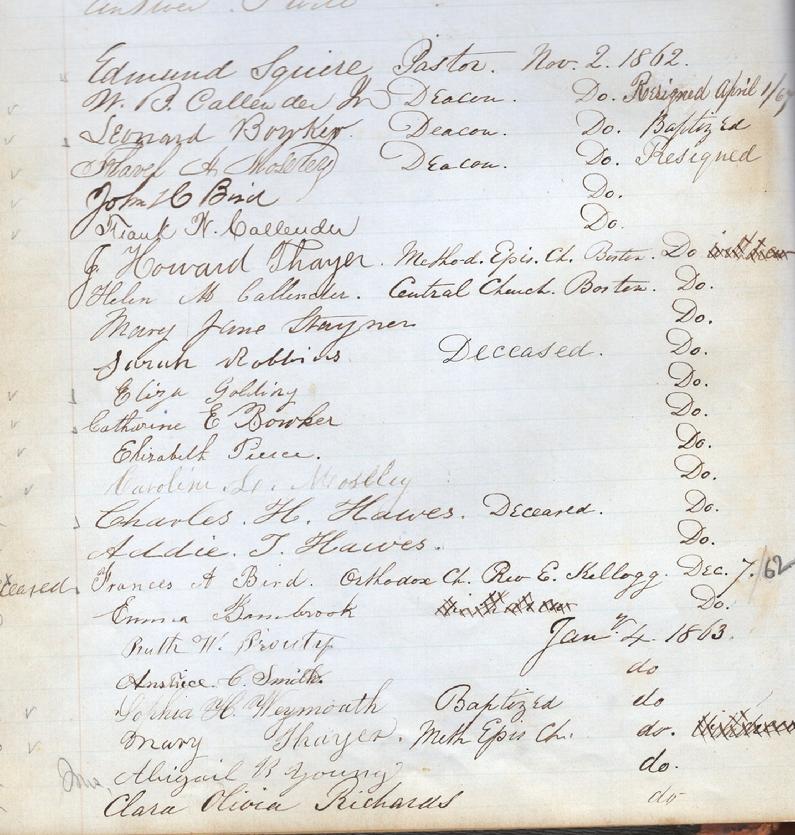 answer. I will
Edmund Squire Pastor. Nov. 2. 1862.
W. B. Callender Jr Deacon. Do. Resigned April 1/67
Leonard Bowker. Deacon. Do. Baptized
Flavel A Moseley Deacon. Do. Resigned
John C Bird Do.
Frank N. Callender Do.
J. Howard Thayer. Method. Epis. Ch. Boston. Do
Helen M Callender. Central Church. Boston. Do.
Mary Jane Stayner Do.
Sarah Robbins Deceased. Do.
Eliza Golding Do.
Catharine E Bowker Do.
Elizabeth Pierce. Do.
Caroline L. Moseley Do.
Charles. H. Hawes. Deceased. Do.
Addie. T. Hawes. Do.
Frances A Bird. Orthodox Ch. Rev E. Kellogg. Dec. 7./62
Emma Bambrook Do.
Ruth W. Prouty Jany 4. 1863.
Anstice. C. Smith. do
Sophia H. Weymouth Baptized do
Mary Thayer. Meth Epis Ch. do.
Abigail B Young do.
Clara Olivia Richards do